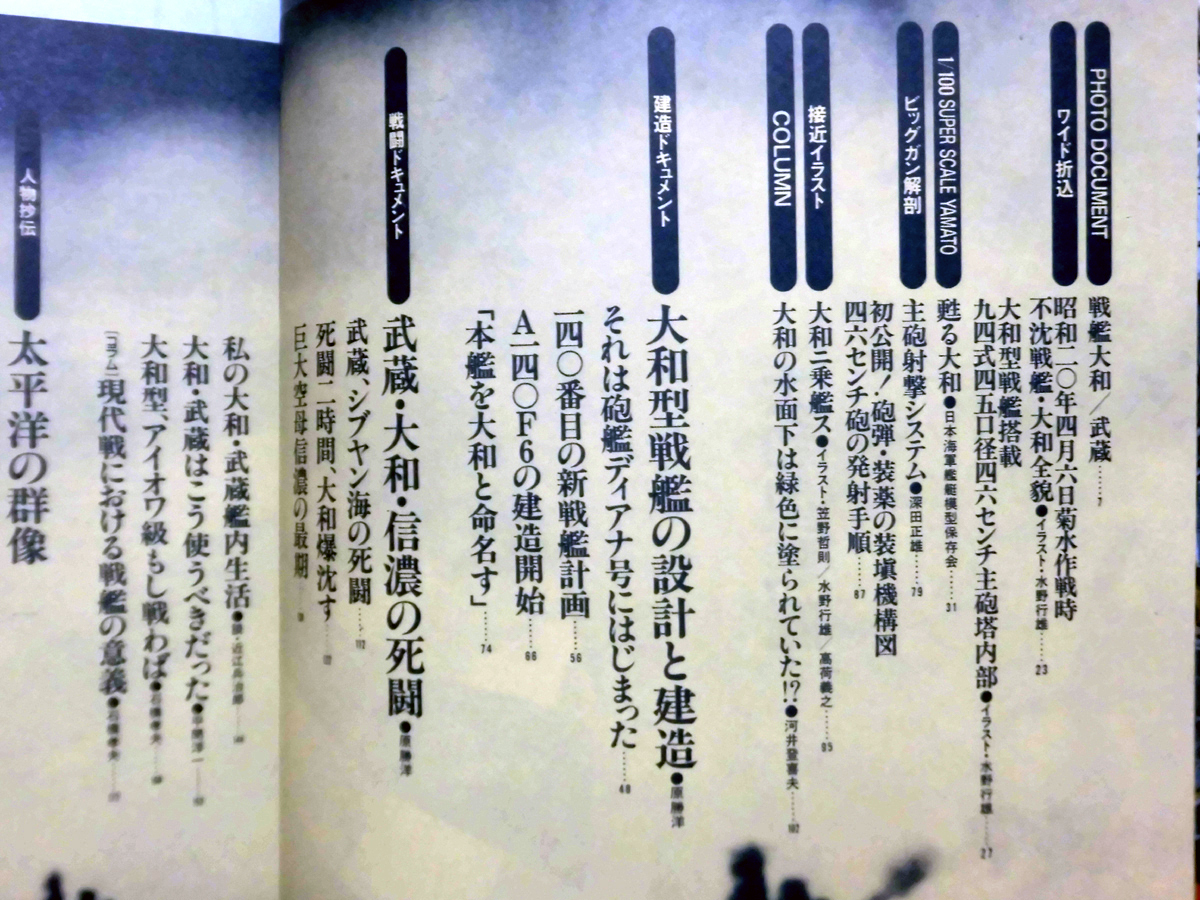 PHOTO DOCUMENT
戦艦大和／武蔵……7
ワイド折込
昭和二〇年四月六日菊水作戦時
不沈戦艦・大和全貌●イラスト・水野行雄……23
大和型戦艦搭載
九四式四五口径四六センチ主砲塔内部●イラスト・水野行雄……27
1/100 SUPER SCALE YAMATO
甦る大和●日本海軍艦艇模型保存会……31
ビッグガン解剖
主砲射撃システム●深田正雄……79
初公開！砲弾・装薬の装填機構図
四六センチ砲の発射手順……87
接近イラスト
大和ニ乗艦ス●イラスト・笠野哲則／水野行雄／高荷義之……95
COLUMN
大和の水面下は緑色に塗られていた!?●河井登喜夫……102
建造ドキュメント
大和型戦艦の設計と建造●原勝洋
それは砲艦ディアナ号にはじまった……40
一四〇番目の新戦艦計画……56
A一四〇F6の建造開始……66
「本艦を大和と命名す」……74
戦闘ドキュメント
武蔵・大和・信濃の死闘●原勝洋
武蔵、シブヤン海の死闘……112
死闘二時間、大和爆沈す……
巨大空母信濃の最期……
私の大和・武蔵艦内生活●
大和・武蔵はこう使うべきだった●
大和型、アイオワ級もし戦わば●石橋孝夫……
［コラム］現代戦における戦艦の意義●石橋孝夫……
人物抄伝
太平洋の群像